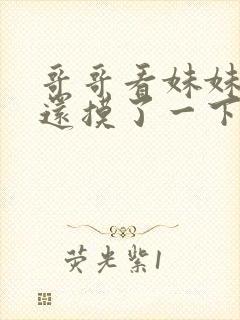 哥哥看妹妹
還摸了一下
荧光紫1